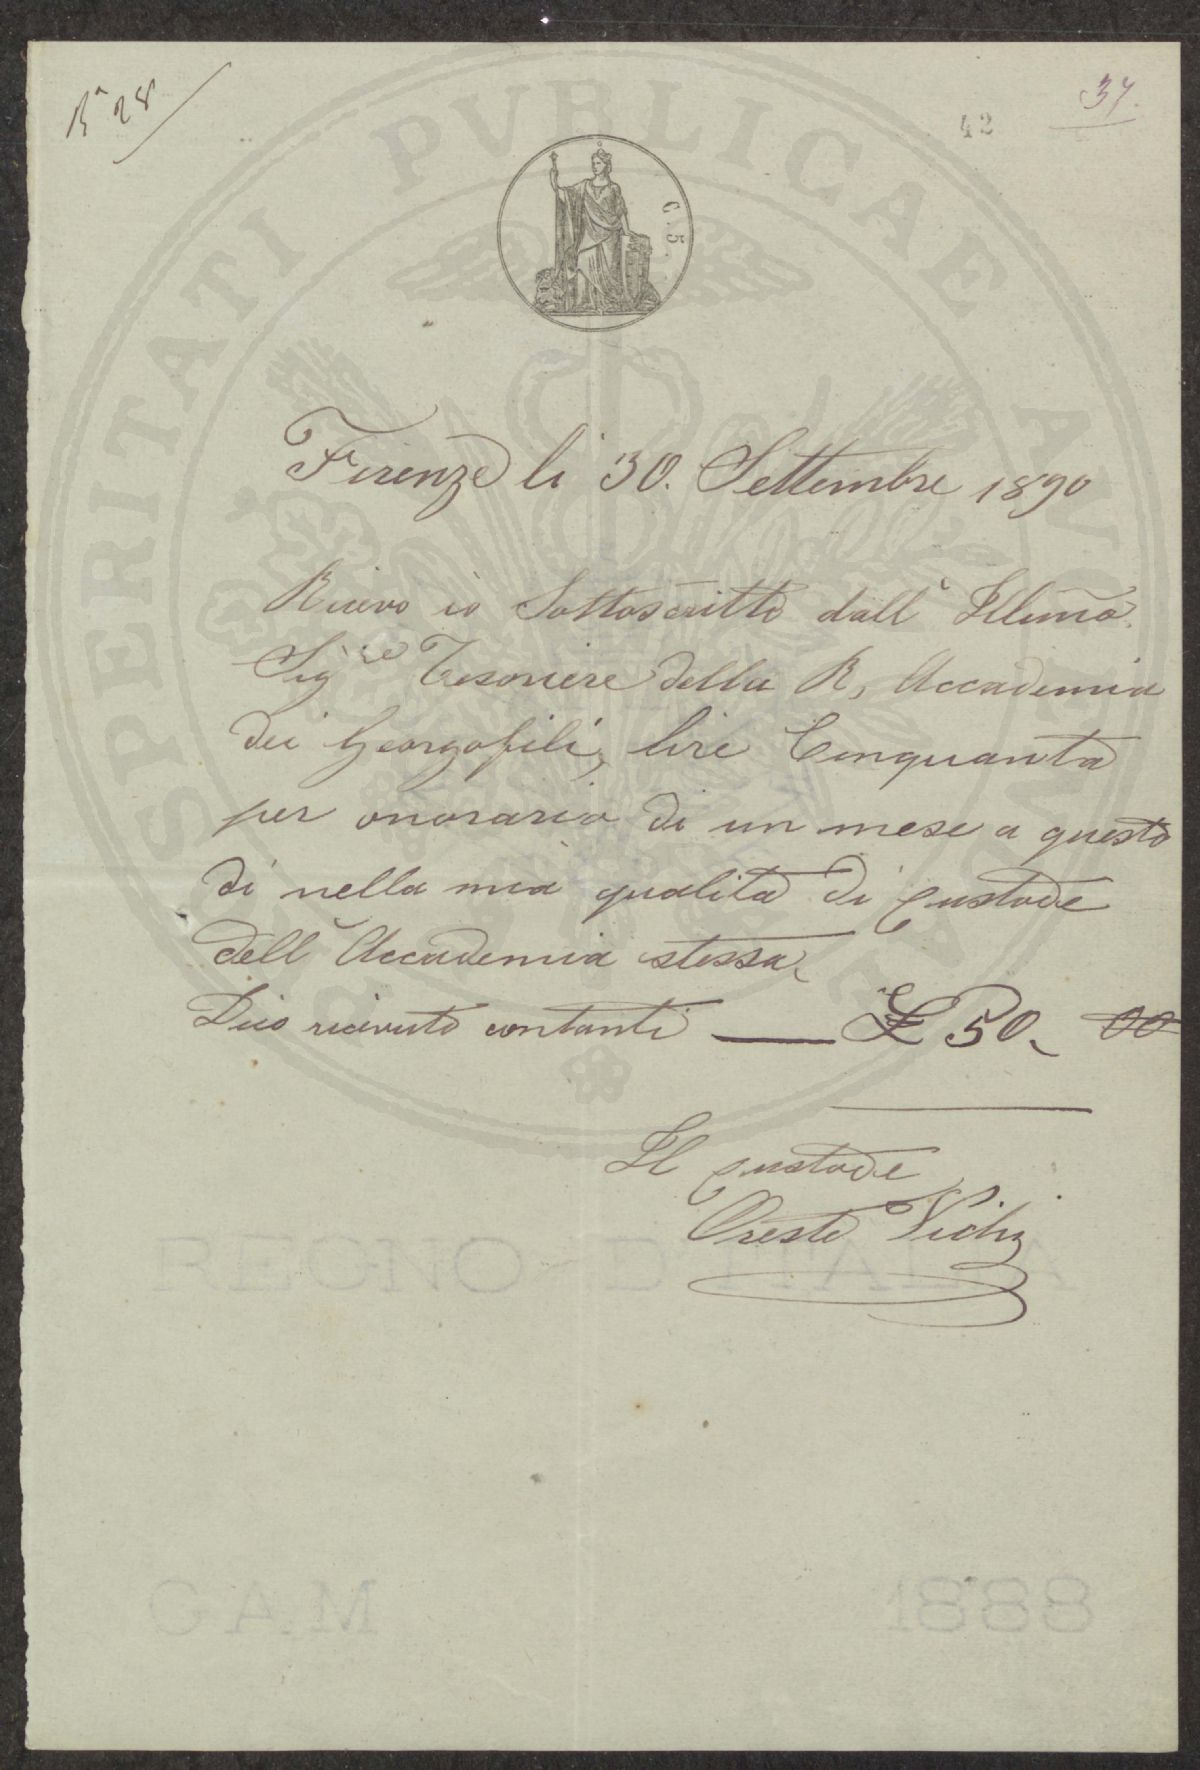 Ra 28
37.
42
C. 5
PROSPERITATI PVBLICAE AVGENDAE
Firenze li 30. Settembre 1890
Ricevo io Sottoscritto dall' Illmo.
Sigre Tesoriere della R. Accademia
dei Georgofili, lire Cinquanta
per onorario di un mese a questo
dì nella mia qualità di Custode
dell' Accademia stessa.
Dico ricevuto contanti — £ 50. 00
Il Custode
Oreste Vichi
REGNO D'ITALIA
G A.M
1888